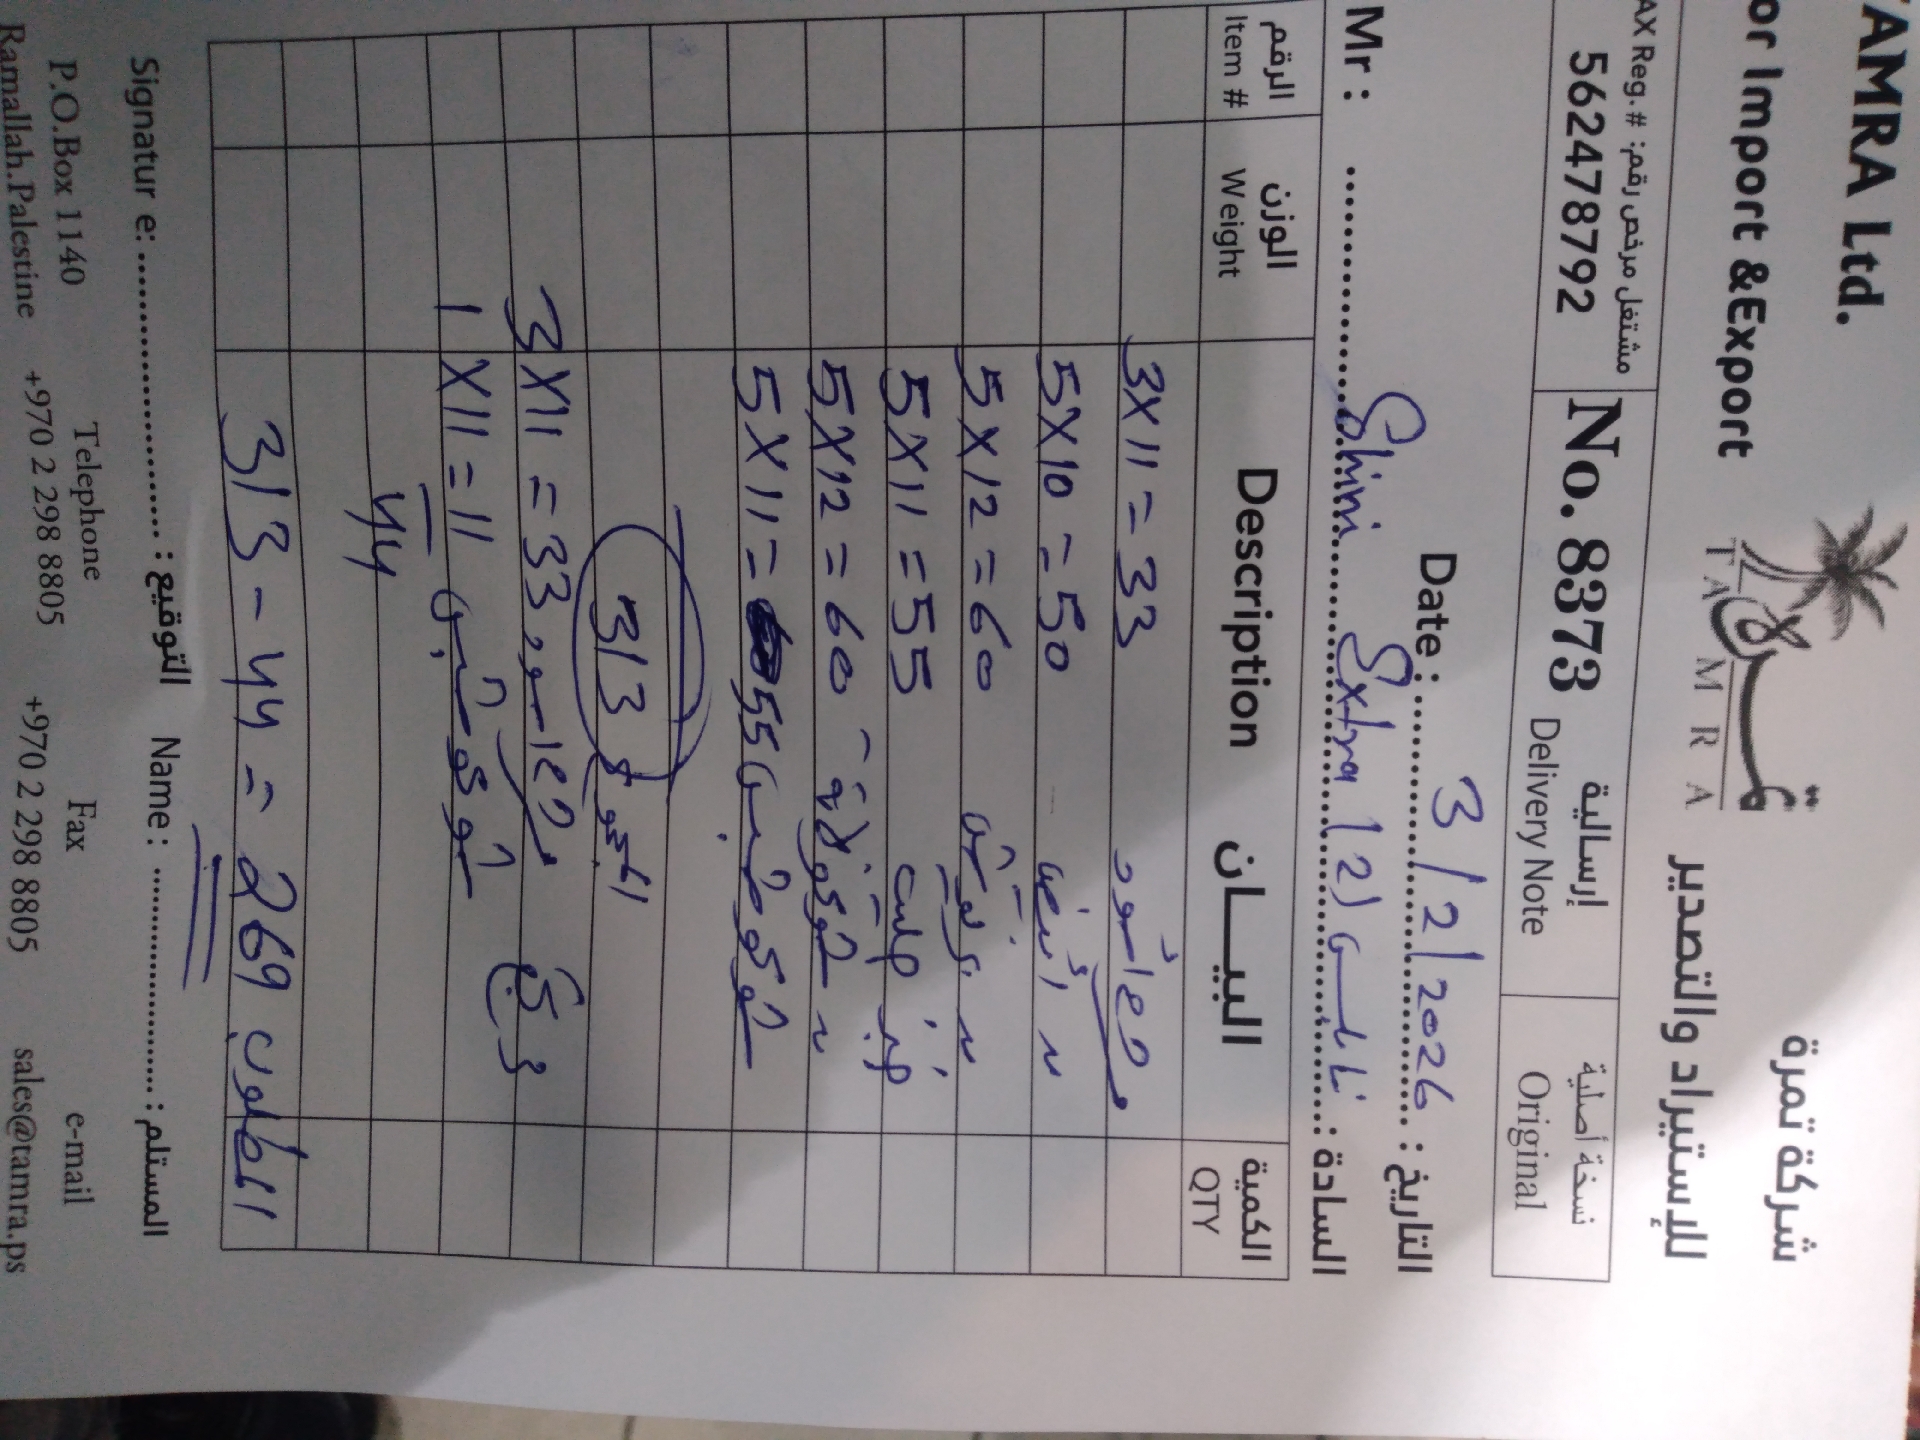 TAMRA Ltd.
شركة تمرة
or Import &Export
للإستيراد والتصدير
تمرة
TAMRA
AX Reg. # :مشتغل مرخص رقم
562478792
No. 8373
إرسالية
Delivery Note
نسخة أصلية
Original
Date: 3/2/2026 : التاريخ
Mr : Shini Extra (2) نابلس : السادة
الرقم
Item #
الوزن
Weight
Description البيـــان
الكمية
QTY
3X11 = 33
5X10 = 50
5X12 = 60
5X11 = 55
5X12 = 60
5X11 = 55
313 المجموع
3X11 = 33
1X11 = 11
44
313 - 44 = 269 المطلوب
Signatur e: : التوقيع
Name: : المستلم
P.O.Box 1140
Telephone
Fax
e-mail
Ramallah.Palestine
+970 2 298 8805
+970 2 298 8805
sales@tamra.ps